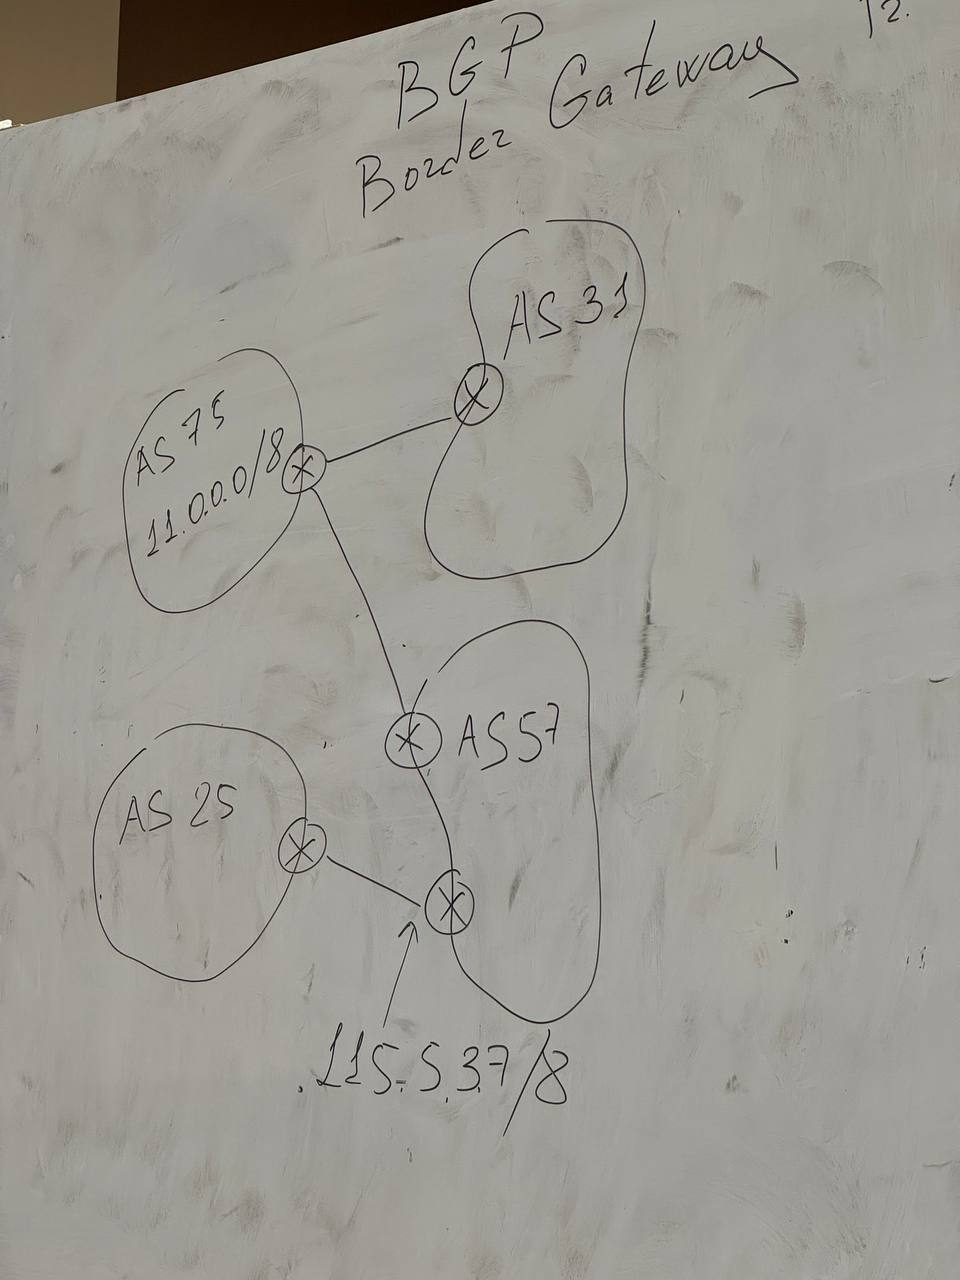 12.
BGP
Border Gateway
AS 31
AS 75
11.0.0.0/8
AS57
AS 25
.115.5.3.7/8